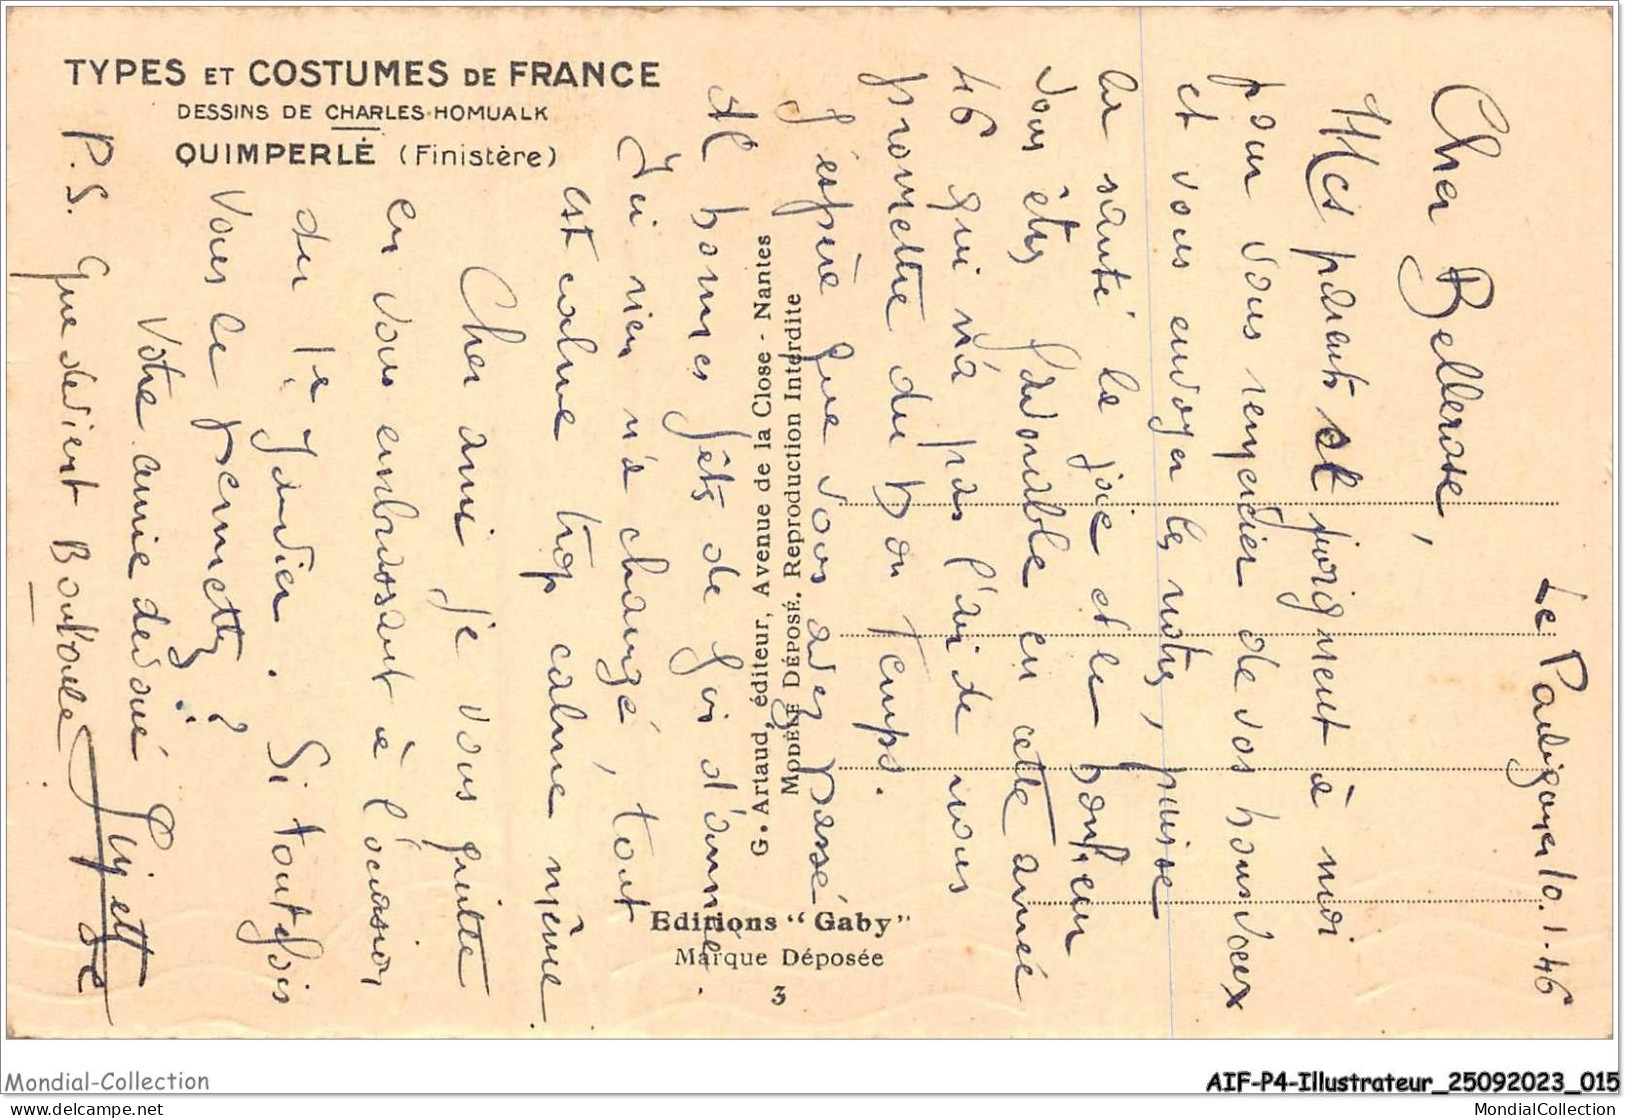 TYPES ET COSTUMES DE FRANCE
DESSINS DE CHARLES HOMUALK
QUIMPERLÉ (Finistère)
G. Artaud, éditeur, Avenue de la Close - Nantes
MODÈLE DÉPOSÉ. Reproduction Interdite
Editions "Gaby"
Marque Déposée
3
Le 10.1.46
Cher Bellerose,
Mes parents se joignent à moi
pour vous remercier de vos bons vœux
et vous envoyer les notres, puisse
la santé la joie et le bonheur
vous êtes favorable en cette année
46 qui n'a pas l'air de nous
promettre du bon temps.
J'espère que vous avez passé
de bonnes fêts de fin d'année.
Ici rien n'a changé, tout
est calme trop calme même.
Cher ami je vous quitte
en vous embrassant à l'occasion
du 1er Janvier. Si toutefois
vous le permettez ?
Votre amie dévouée Ginette
P.S. Que devient
Mondial-Collection
AIF-P4-Illustrateur_25092023_015
delcampe.net
MondialCollection